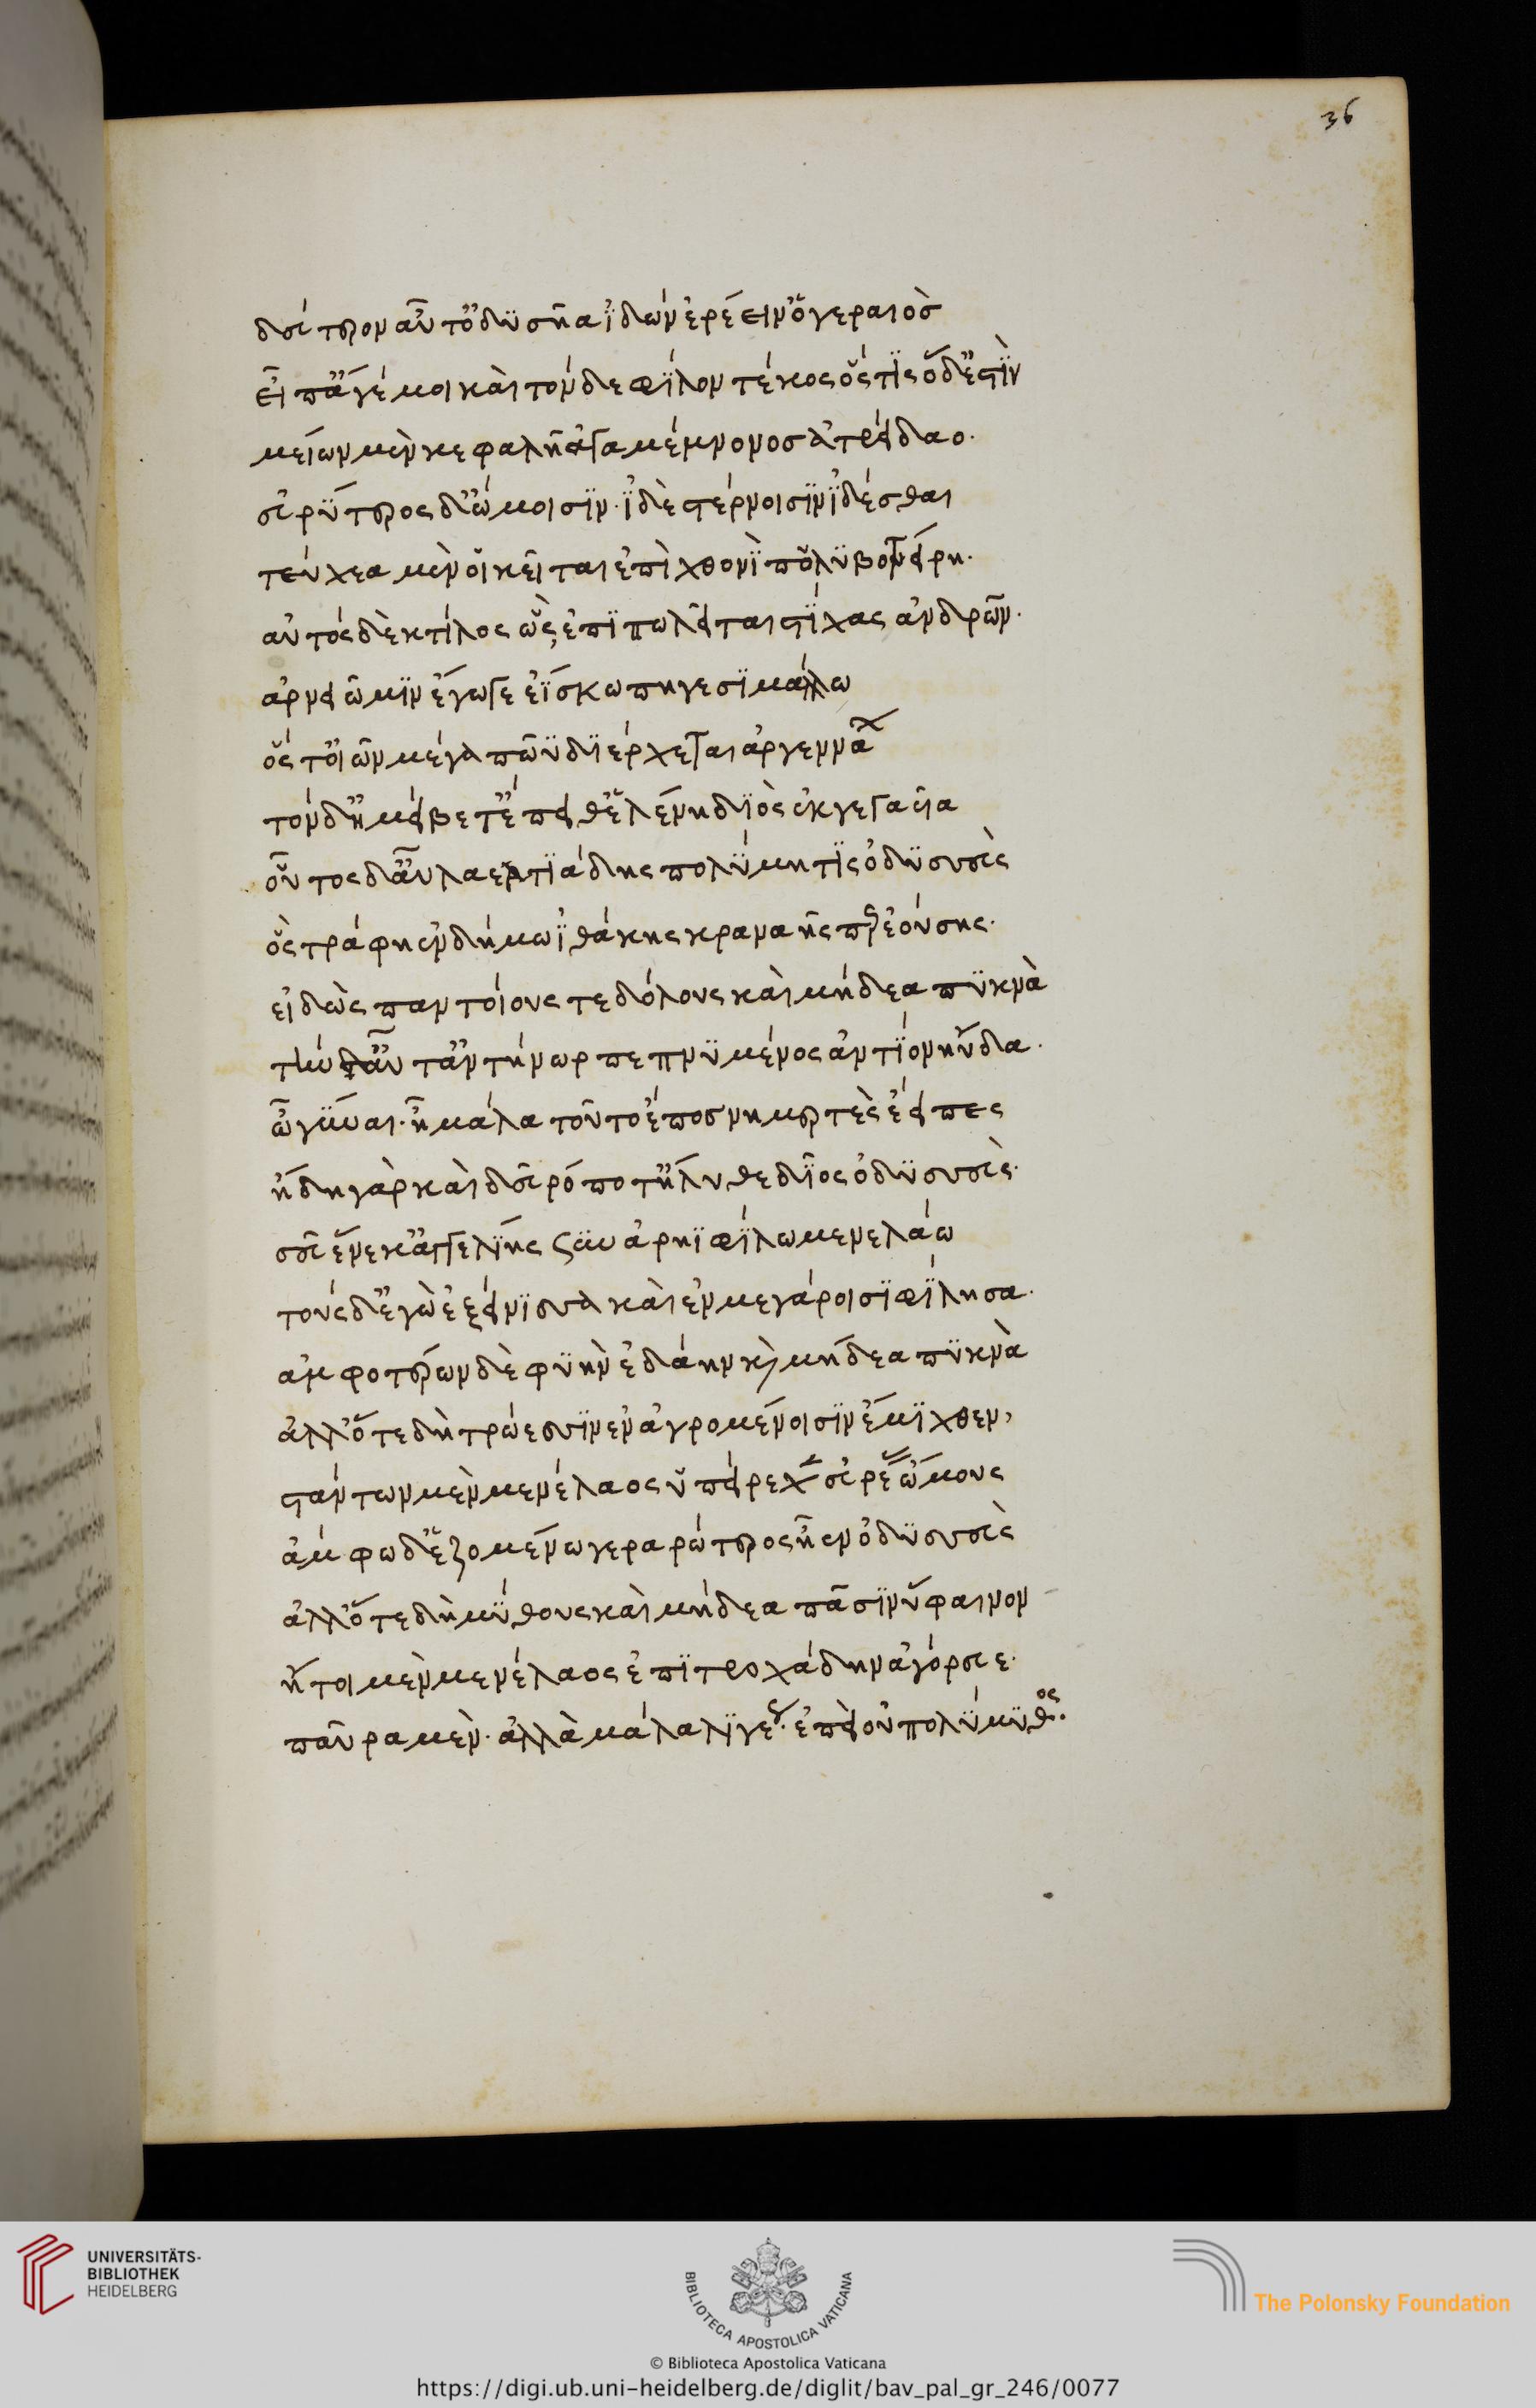 36
δεύτερον αὖτ' ὀδυσῆα ἰδὼν ἐρέειν' ὁ γεραιὸσ
εἶπ' ἄγέ μοι καὶ τόνδε φίλον τέκος ὅς τίς ὅδ' ἐστὶν
μείων μὲν κεφαλῆ ἀγαμέμνονοσ ἀτρείδαο.
εὐρύτερος δ' ὤμοισιν. ἰδὲ στέρνοισιν ἰδέσθαι
τεύχεα μέν οἱ κεῖται ἐπὶ χθονὶ πολυβοτείρη.
αὐτός δὲ κτίλος ὣς, ἐπιπωλεῖται στίχας ἀνδρῶν.
ἀρνειῶ μιν ἔγωγε ἐΐσκω πηγεσιμάλλω
ὅς τ' οἰῶν μέγα πῶϋ διέρχεται ἀργεννάων
τόνδ' ἠμείβετ' ἔπειθ' ἑλένη διὸς ἐκγεγαῖα
οὗτος δ' αὖ λαερτιάδης πολύμητις ὀδυσσεὺς
ὃς τράφη ἐν δήμω ἰθάκης κραναῆς περ ἐούσης.
εἰδὼς παντοίους τε δόλους καὶ μήδεα πυκνὰ
τὴν δ' αὖτ' ἀντήνωρ πεπνυμένος ἀντίον ηὔδα.
ὦ γύναι. ἦ μάλα τοῦτο ἔποσ νημερτὲς ἔειπες
ἤδη γὰρ καὶ δεῦρό ποτ' ἤλυθε δῖος ὀδυσσεὺς.
σεῦ ἕνεκ' ἀγγελίης σὺν ἀρηϊφίλω μενελάω
τούς δ' ἐγὼ ἐξείνισσα καὶ ἐν μεγάροισι φίλησα.
ἀμφοτέρων δὲ φυὴν ἐδάην κὶ μήδεα πυκνὰ
ἀλλ' ὅτε δὴ τρώεσσιν ἐν ἀγρομένοισιν ἔμιχθεν,
στάντων μὲν μενέλαος ὑπείρεχεν εὐρέας ὤμους
ἄμφω δ' ἑζομένω γεραρώτερος ἦεν ὀδυσσεὺς
ἀλλ' ὅτε δὴ μύθους καὶ μήδεα πᾶσιν ὕφαινον
ἤτοι μὲν μενέλαος ἐπιτροχάδην ἀγόρευε.
παῦρα μὲν. ἀλλὰ μάλα λιγέως. ἐπεὶ οὐ πολύμυθος.
UNIVERSITÄTS-
BIBLIOTHEK
HEIDELBERG
BIBLIOTECA APOSTOLICA VATICANA
The Polonsky Foundation
© Biblioteca Apostolica Vaticana
https://digi.ub.uni-heidelberg.de/diglit/bav_pal_gr_246/0077